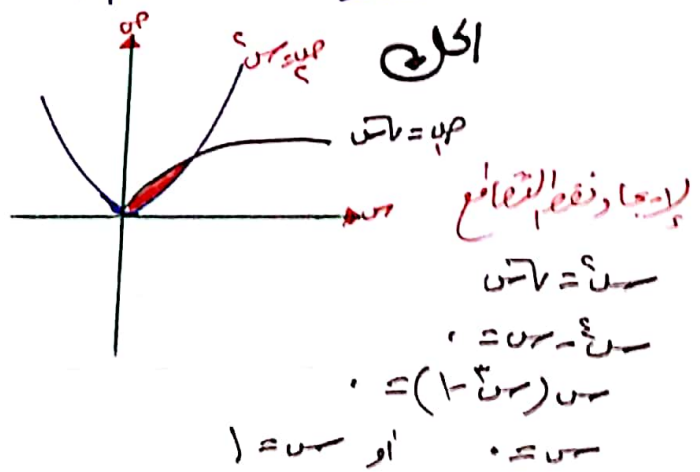 ص
ص٢ = س٢
الحل
ص١ = √س
س
لإيجاد نقط التقاطع
س٢ = √س
س٤ - س = ٠
س(س٣ - ١) = ٠
س = ٠ أو س = ١